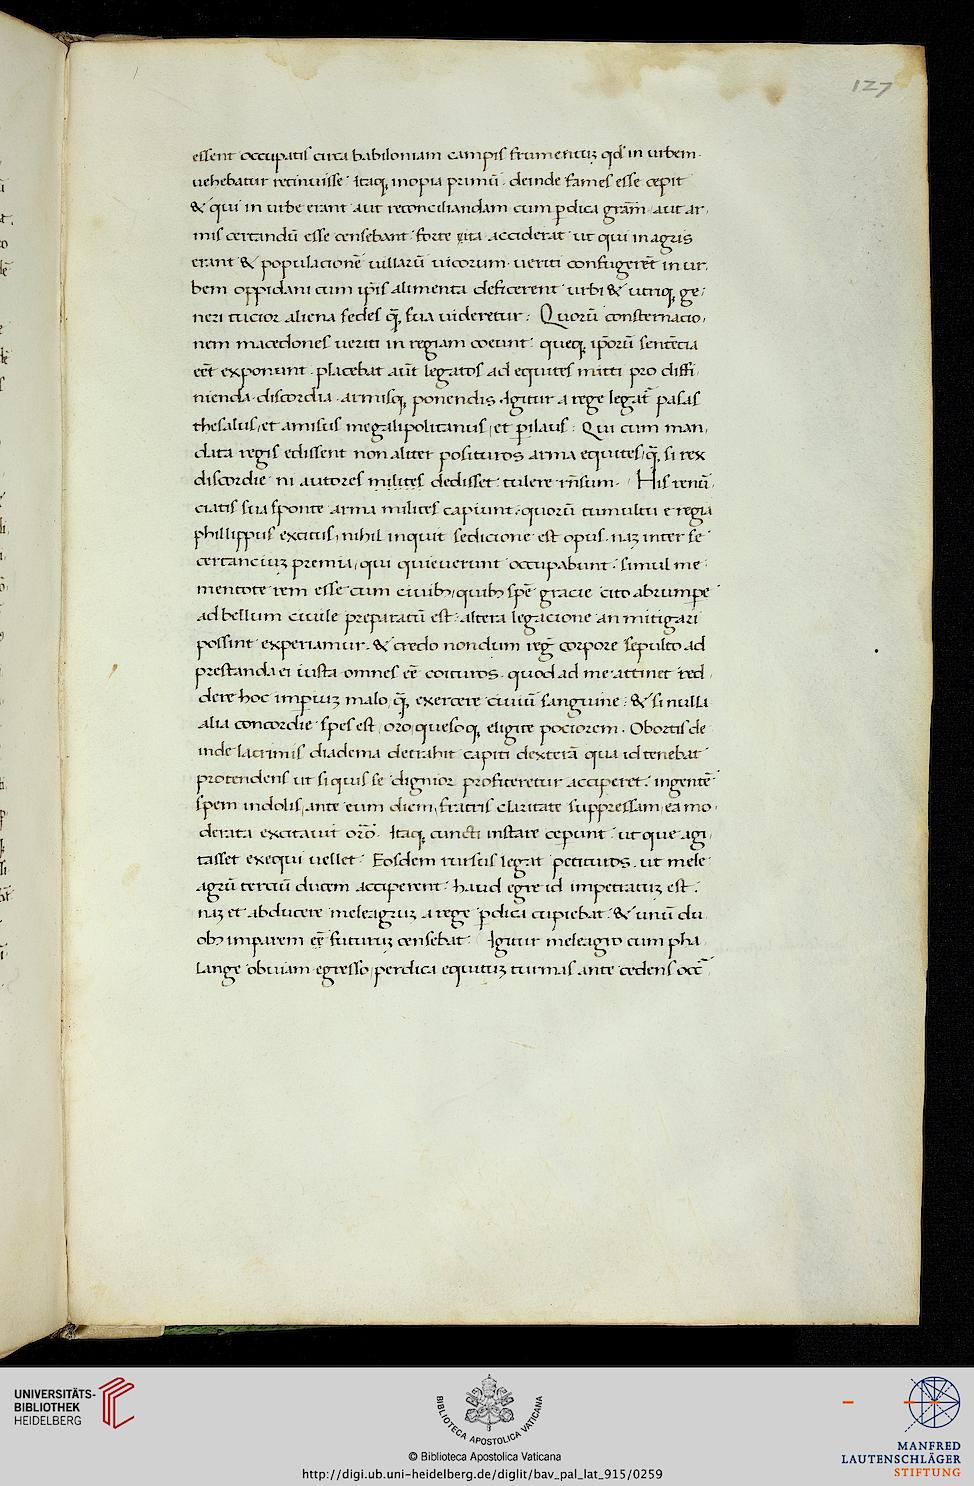 127
essent occupatis circa babiloniam campis frumentuꝫ qđ in urbem.
uehebatur retinuisse. Itaq; inopia primū. deinde fames esse cepit
& qui in urbe erant aut reconciliandam cum ꝑdica gram̄. aut ar,
mis certandū esse censebant. forte ita acciderat ut qui in agris
erant & populacionē uillarū uicorum. ueriti confugerēt in ur,
bem oppidani cum ip̄is alimenta deficerent urbi & utriq; ge,
neri tucior aliena sedes q̄; sua uideretur: Quorū consternacio,
nem macedones ueriti in regiam coeunt. queq; ip̄orū sentēcia
eēt exponunt. placebat aūt legatos ad equites mitti pro diffi,
nienda. discordia. armisq; ponendis. Igitur a rege legat̄ pasas
thesalus, et amisus megalipolitanus, et ꝑilaus: Qui cum man,
data regis edissent non aliter posituros arma equites, q̄; si rex
discordie ni autores milites dedisset. tulere rn̄sum. His renū,
ciatis sua sponte arma milites capiunt: quorū tumultu e regia
phillippus excitus, nihil inquit sedicione est opus. naꝫ inter se
certanciuꝫ premia, qui quieuerunt occupabunt. simul me
mentote rem esse cum ciuibꝫ, quibꝫ spē gracie cito abrumpe
ad bellum ciuile preparatū est. altera legacione an mitigari
possint experiamur. & credo nondum reḡ corpore sepulto ad
prestanda ei iusta omnes eē coituros. quod ad me attinet red,
dere hoc imperiuꝫ malo, q̄; exercere ciuiū sanguine: & si nulla
alia concordie spes est, oro, quesoq; eligite pociorem. Obortis de
inde lacrimis diadema detrahit capiti dexterā qua id tenebat
protendens ut si quis se dignior profiteretur acciperet. ingentē
spem indolis, ante eum diem, fratris claritate suppressam, ea mo,
derata excitauit orō. Itaq; cuncti instare ceperunt. ut que agi,
tasset exequi uellet. Eosdem rursus legat petituros. ut mele
agrū terciū ducem acciperent. haud egre id impetratuꝫ est.
naꝫ et abducere meleagruꝫ a rege ꝑdica cupiebat. & unū du
obꝫ imparem eē futuruꝫ censebat. Igitur meleagro cum pha
lange obuiam egresso, perdica equituꝫ turmas ante cedens occ̄
UNIVERSITÄTS-
BIBLIOTHEK
HEIDELBERG
BIBLIOTECA APOSTOLICA VATICANA
© Biblioteca Apostolica Vaticana
http://digi.ub.uni-heidelberg.de/diglit/bav_pal_lat_915/0259
MANFRED
LAUTENSCHLÄGER
STIFTUNG